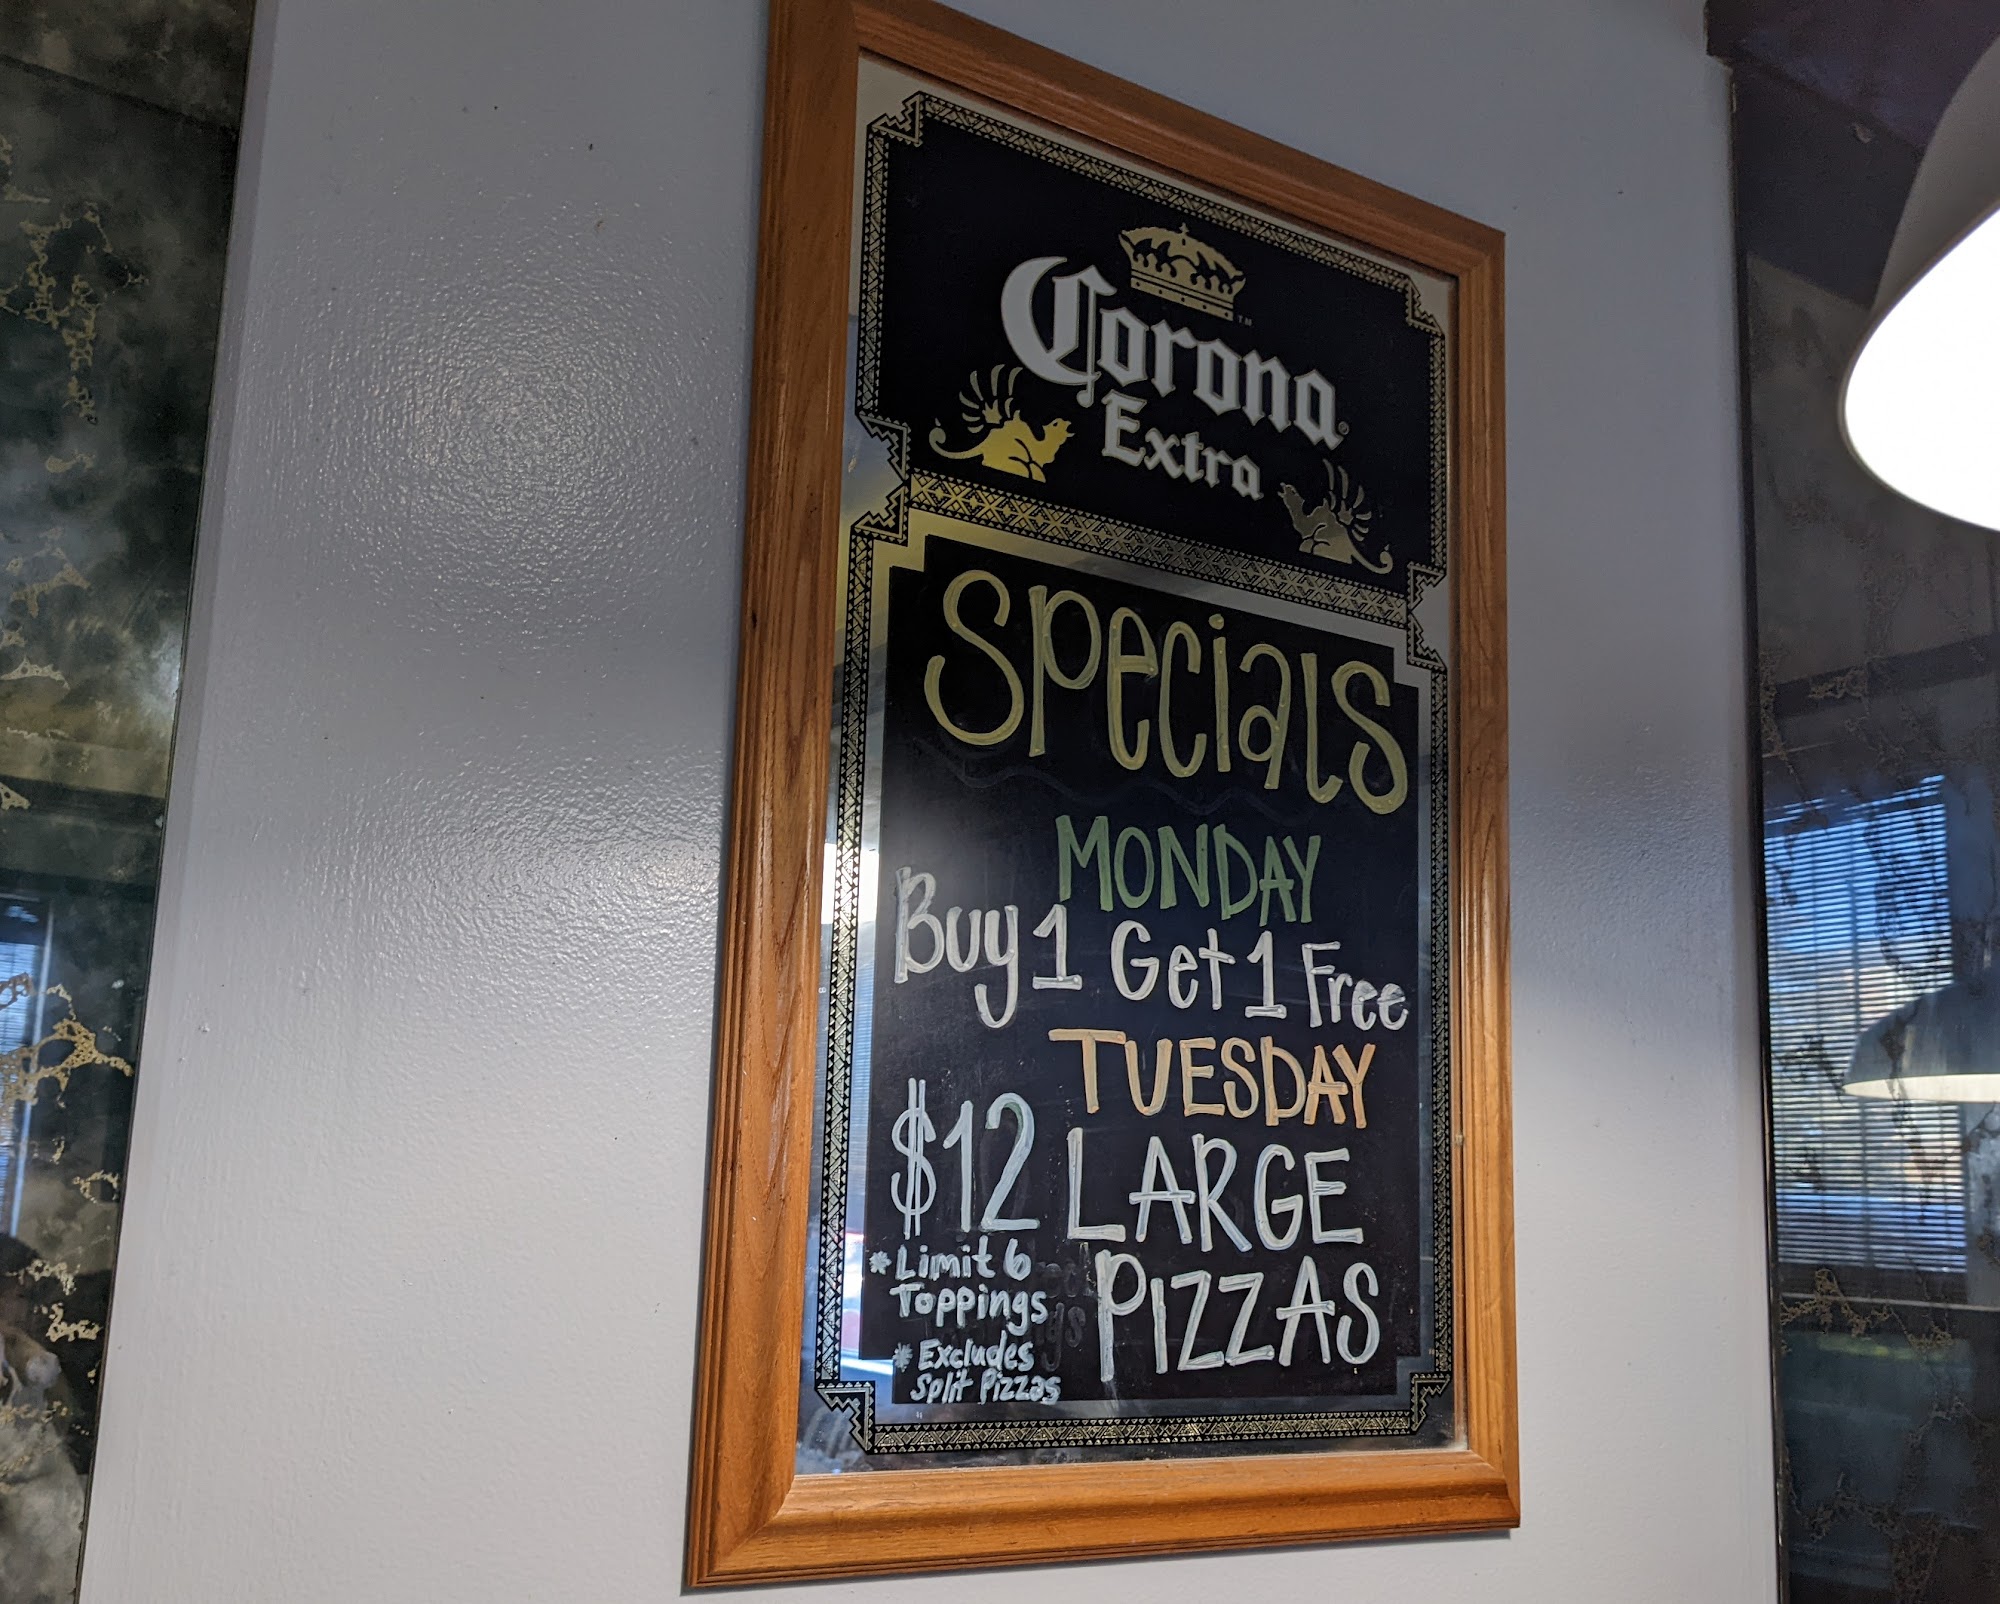 Corona
Extra
Specials
MONDAY
Buy 1 Get 1 Free
TUESDAY
$12 LARGE
PIZZAS
* Limit 6
Toppings
* Excludes
Split Pizzas